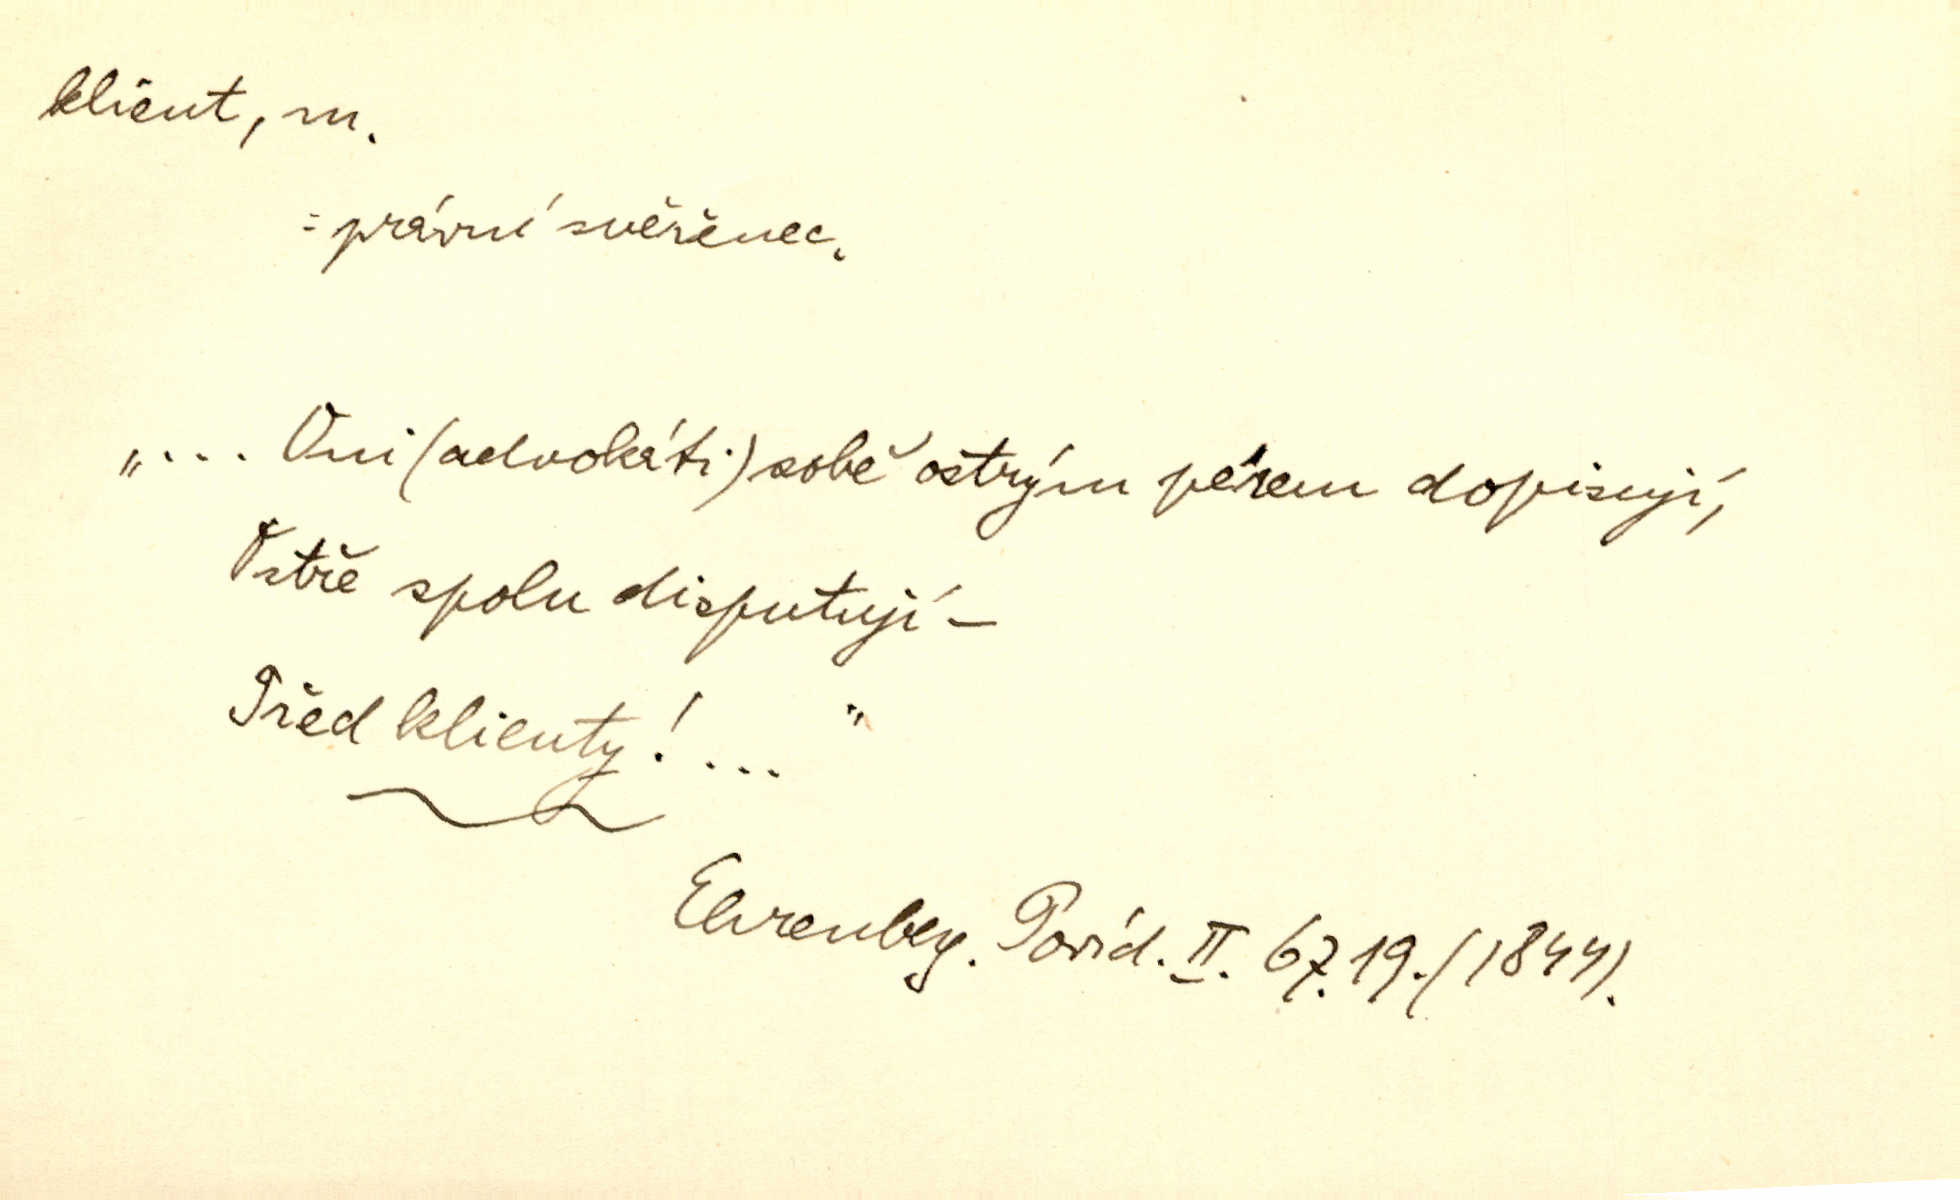 klient, m.
= právní svěřenec.
„... Oni (advokáti) sobě ostrým pérem dopisují,
Ostře spolu disputují –
Před klienty! ... "
Ehrenberg. Povíd. II. 67. 19. (1844).